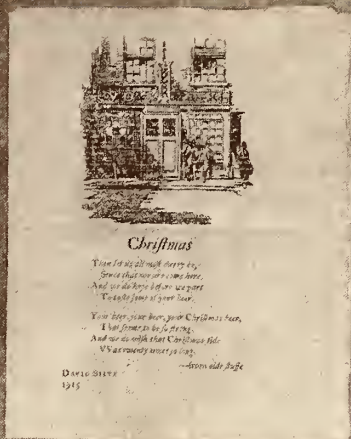 Chriſtmas
Then let us all moſt merry be,
ſince that we are come here,
And we do hope before we part
To taſte ſome of your beer.
Your beer, your beer, your Chriſtmas beer,
That ſeems to be ſo ſtrong,
And we do wiſh that Chriſtmas tide
VVas twenty times ſo long.
—from olde ſtuffe
DAVID SILVE
1915